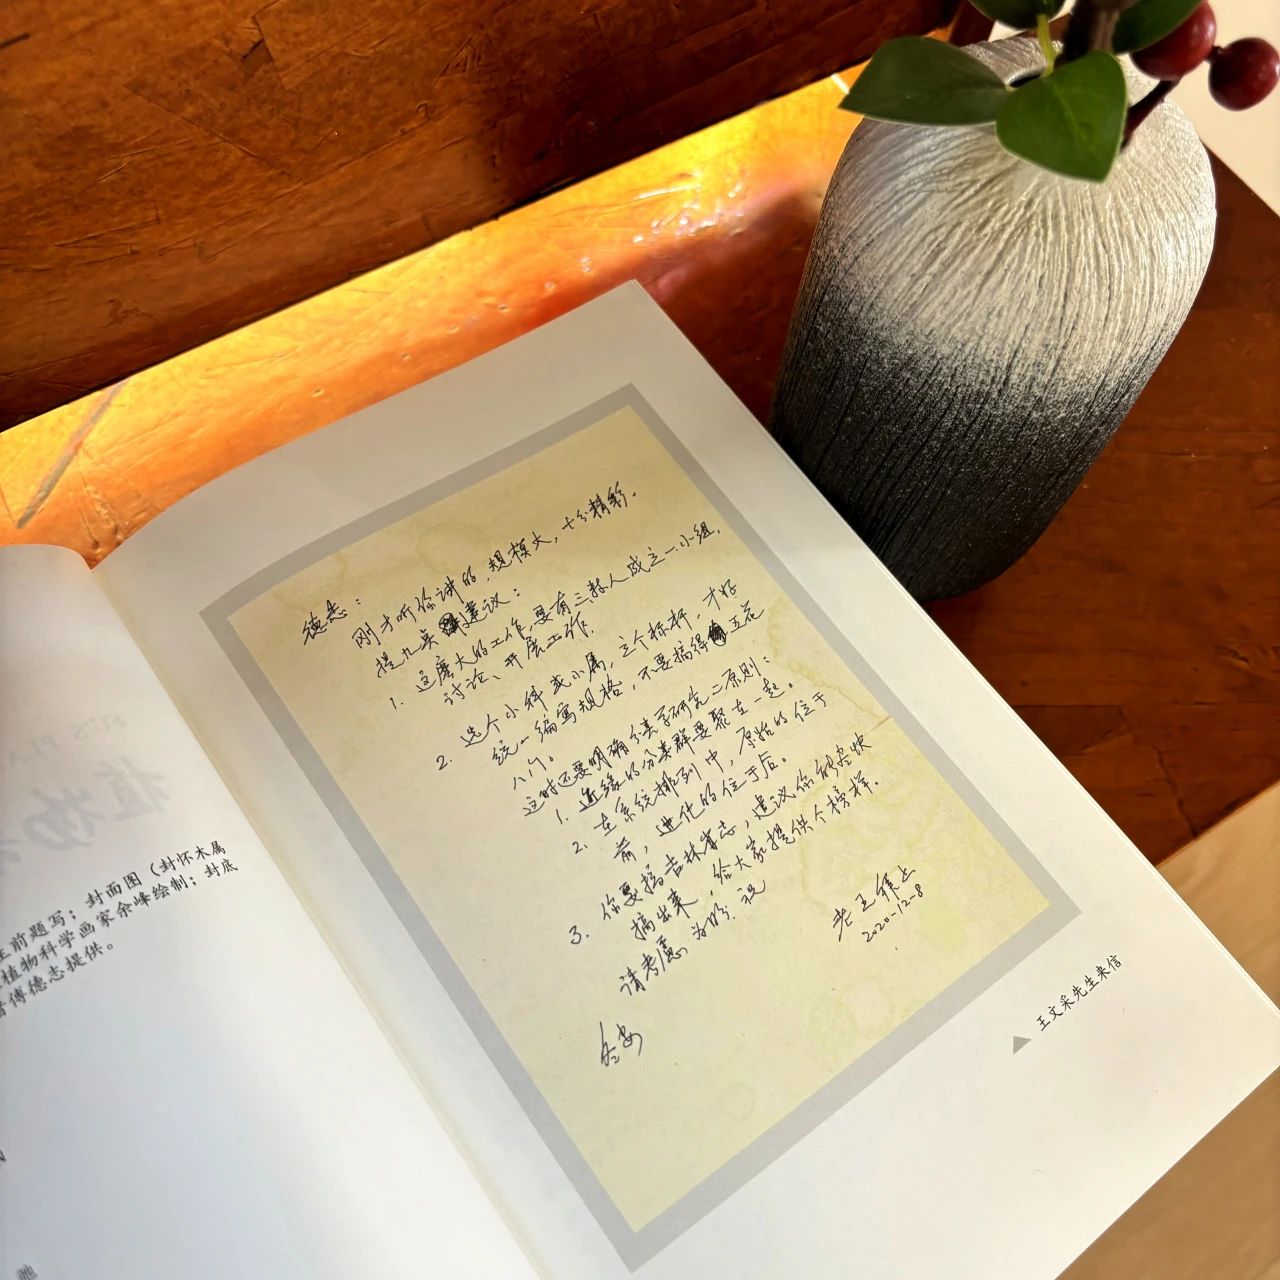 德志：
刚才听你讲的，规模大，十分精彩。
提几点建议：
1. 这麽大的工作，要有三数人成立一小组，
讨论、开展工作。
2. 选个小科或小属，立个标杆，才好
统一编写规格，不要搞得五花
八门。
这时还要明确分类学研究二原则：
1. 近缘的分类群要聚在一起。
2. 在系统排列中，原始的位于
前，进化的位于后。
3. 你要搞吉林省志，建议你能尽快
搞出来，给大家提供个榜样。
请考虑为盼. 祝
冬安
老王
2020-12-8
▲ 王文采先生来信
植物
生前题写；封面图（封怀木属
植物科学画家余峰绘制；封底
傅德志提供。